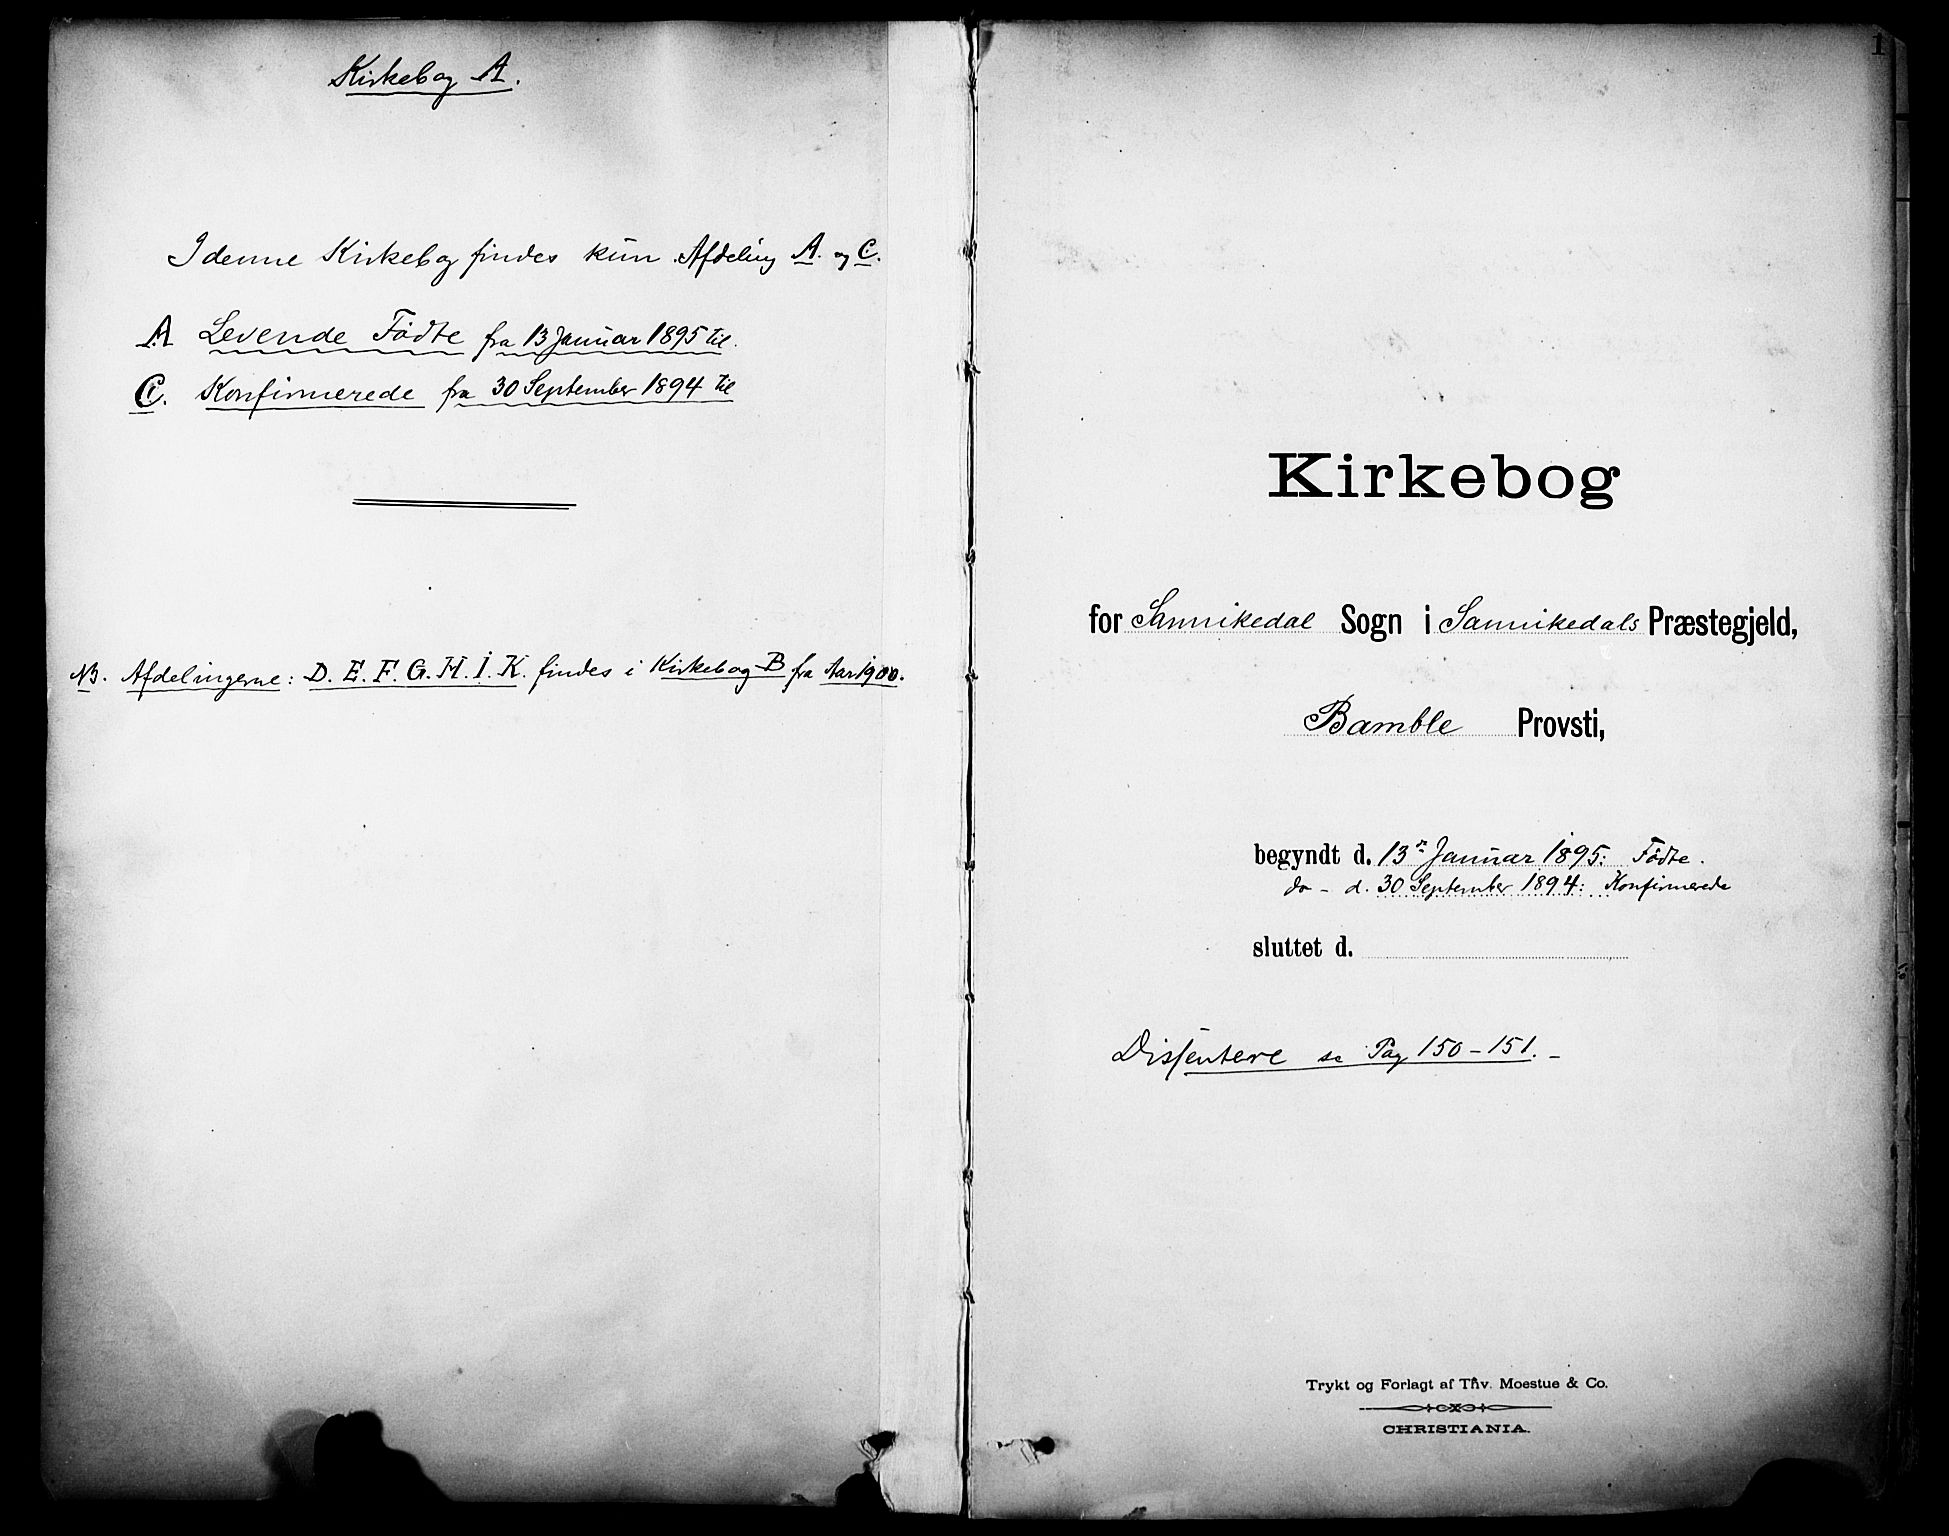 Kirkebog A.
I denne Kirkebog findes kun Afdeling A. og C.
A Levende Fødte fra 13 Januar 1895 til.
C. Konfirmerede fra 30 September 1894 til
NB. Afdelingerne: D. E. F. G. H. I. K. findes i Kirkebog B fra Aar 1900.
1
Kirkebog
for Sannikedal Sogn i Sannikedals Præstegjeld,
Bamble Provsti,
begyndt d. 13de Januar 1895: Fødte.
do - d. 30 September 1894: Konfirmerede
sluttet d.
Dissentere se Pag 150-151. -
Trykt og Forlagt af Thv. Moestue & Co.
CHRISTIANIA.